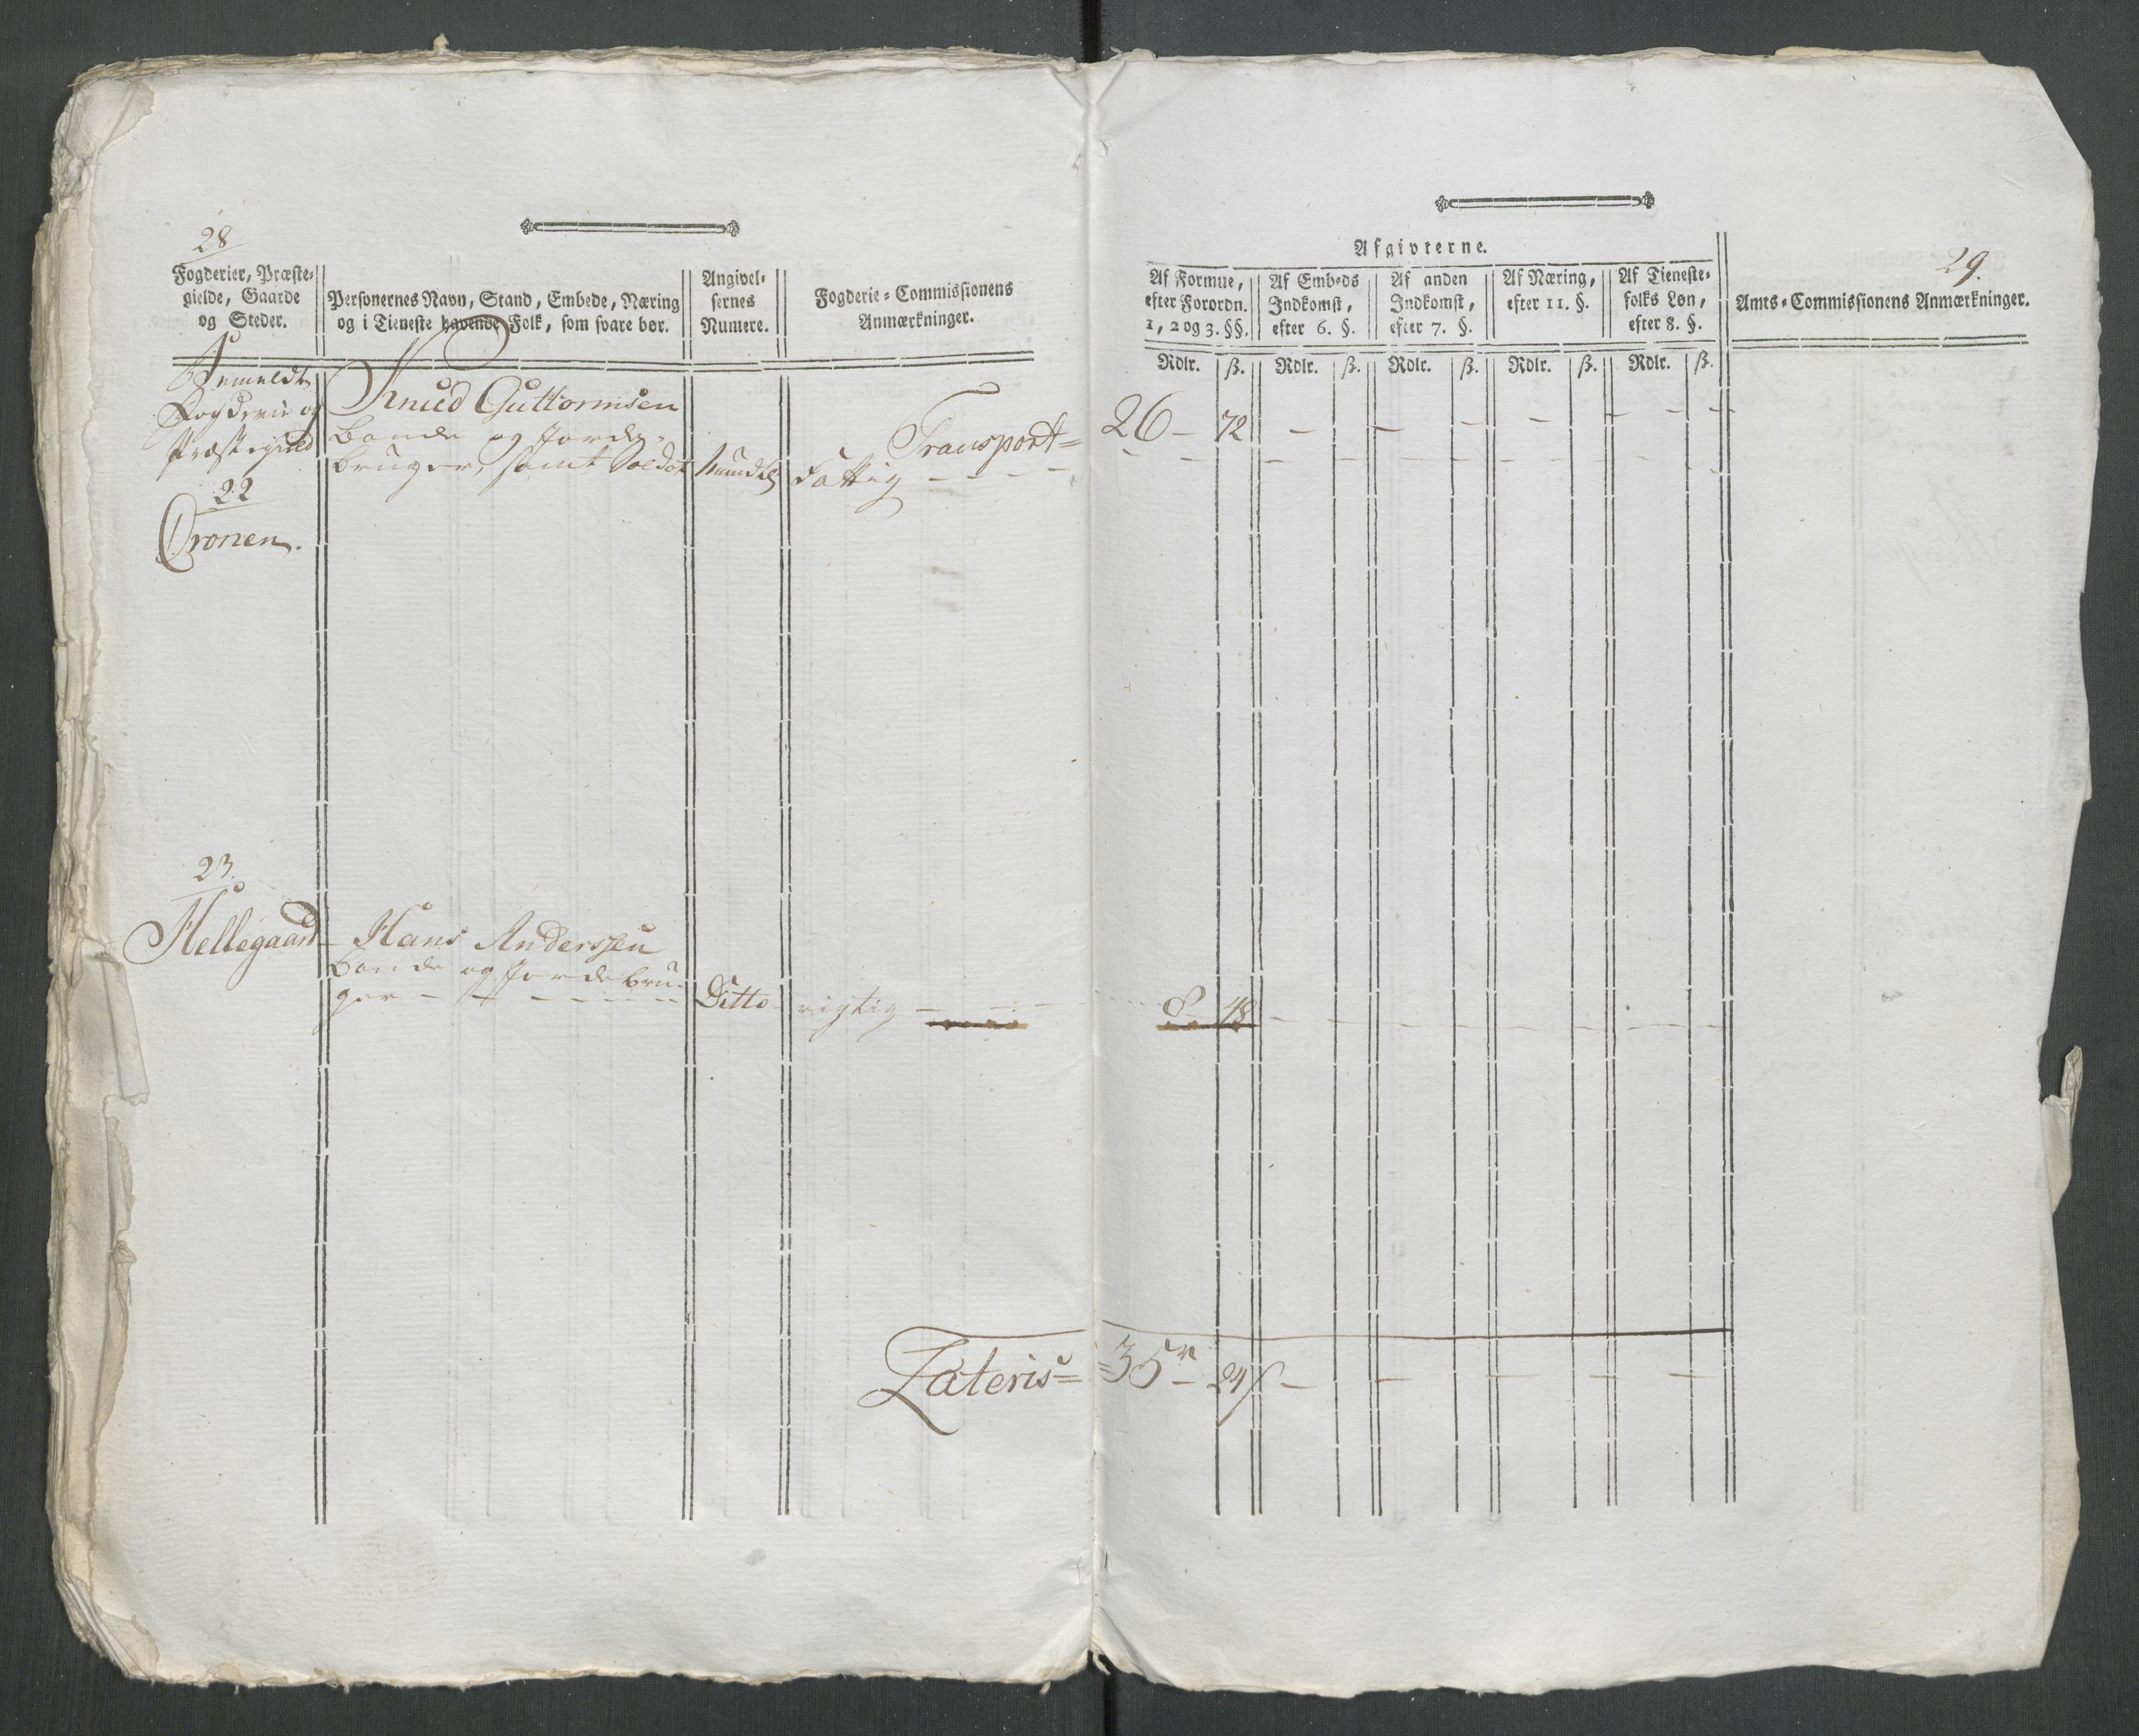 28
Fogderier, Præste-
gielde, Gaarde
og Steder.
Personernes Navn, Stand, Embede, Næring
og i Tieneste havende Folk, som svare bør.
Angivel-
sernes
Numere.
Fogderie-Commissionens
Anmærkninger.
Bemeldte
Fogderie og
Præstegield
22
Cronen.
Knud Guttormsen
Bonde og Jorde-
bruger, samt Soldat
mundtlig
Transport=
Fattig - - - -
23.
Hellegaard
Hans Anderssen
bonde og Jordebru-
ger - - - - - -
Ditto
rigtig -
Lateris =
29.
Afgivterne.
Af Formue,
efter Forordn.
1, 2 og 3. §§.
Af Embeds
Indkomst,
efter 6. §.
Af anden
Indkomst,
efter 7. §.
Af Næring,
efter 11. §.
Af Tieneste-
folks Løn,
efter 8. §.
Amts-Commissionens Anmærkninger.
Rdlr. ß. Rdlr. ß. Rdlr. ß. Rdlr. ß. Rdlr. ß.
26 - 72 - - - - - - -
8 - 48 - - - - - - - -
=35 r - 24 ß - - - - -